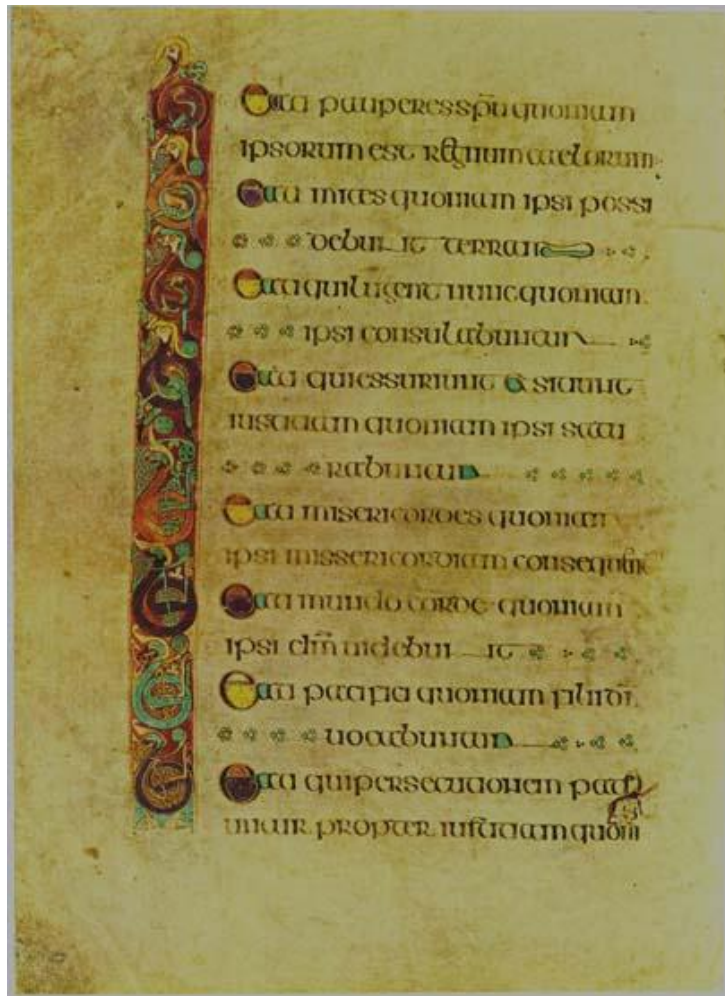 Eati pauperes sp̄u quoniam
ipsorum est regnum caelorum
Eati mites quoniam ipsi possi
debunt terram
Eati qui lugent nunc quoniam
ipsi consulabuntur
Eati qui essuriunt & sitiunt
iustitiam quoniam ipsi satu
rabuntur
Eati misericordes quoniam
ipsi missericordiam
Eati mundo corde quoniam
ipsi dm̄ uidebunt
Eati pacifici quoniam filii dī
uocabuntur
Eati qui persecutionem pati
untur propter iustitiam quoni